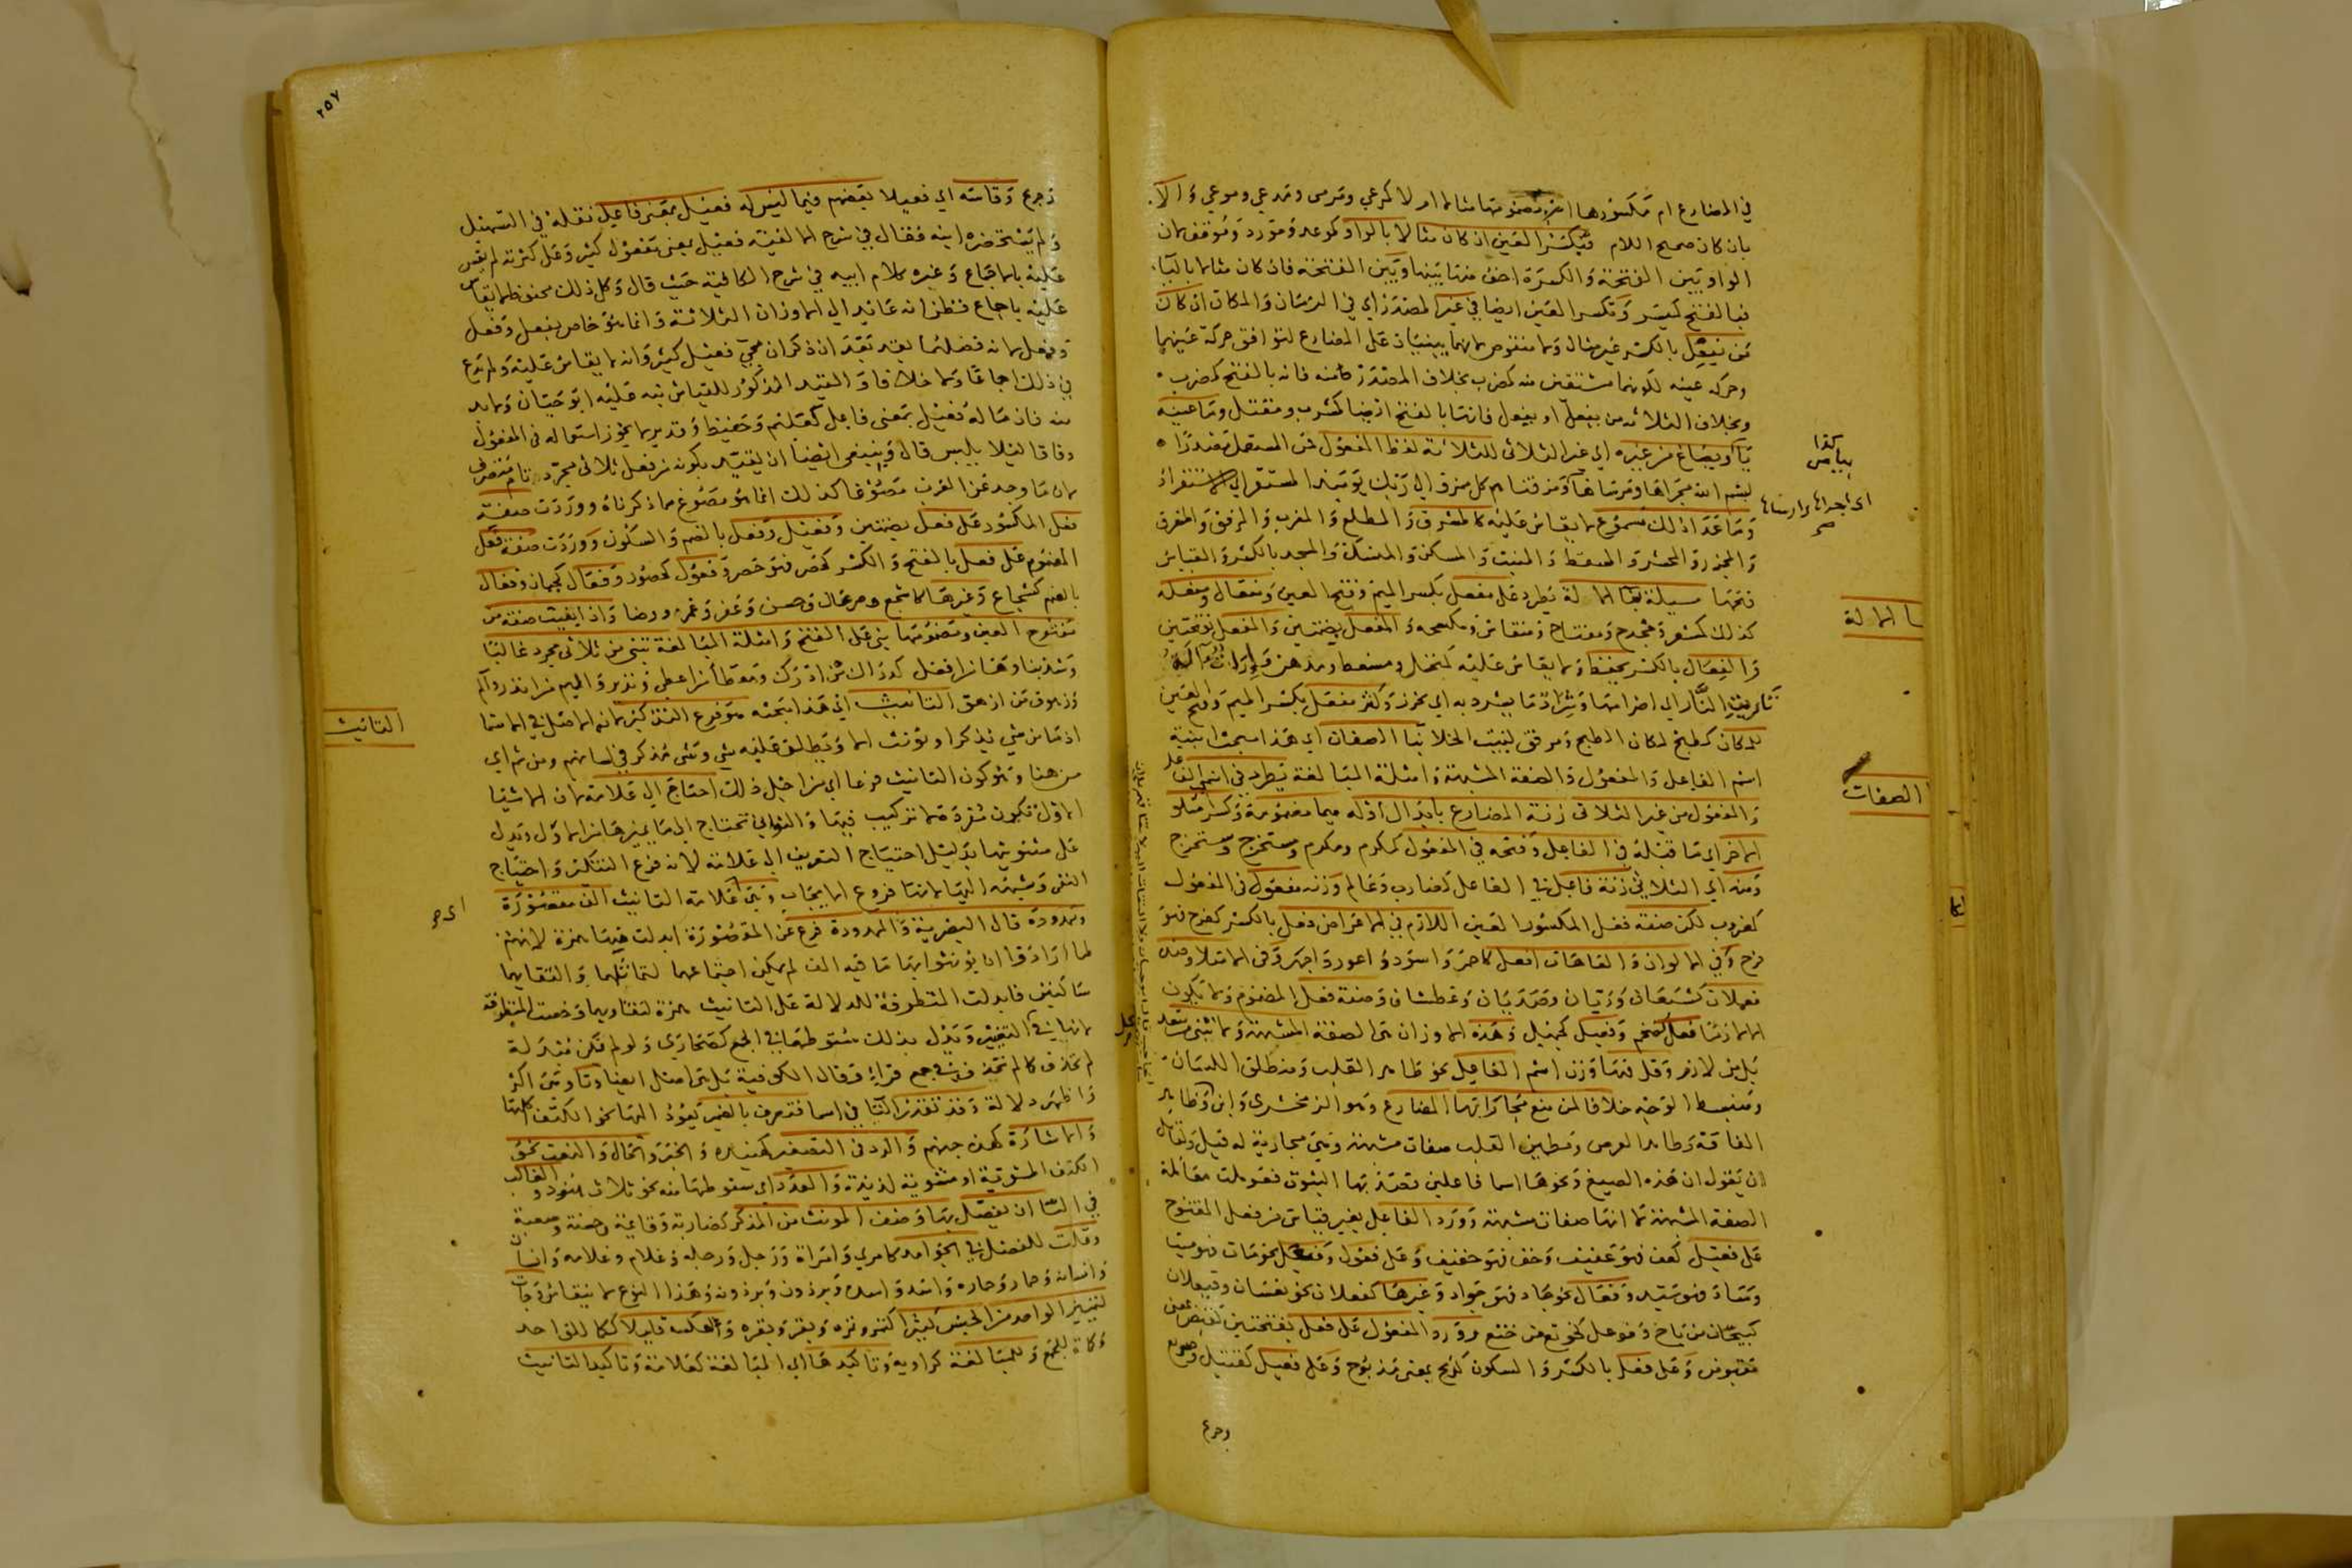 في المضارع ام مكسورها ام مضمومها مثالا ام لا كمرعى ومرمى ومدعى وموعى والا
بان كان صحيح اللام فتكسر العين ان كان مثالا بالواو كموعد ومورد وموقف لان
الواو بين الفتحة والكسرة اخف منها بينها وبين الفتحة فان كان مثالا بالياء
فبالفتح كميسر وتكسر العين ايضا في غير المصدر اي في الزمان والمكان ان كان
من يفعل بالكسر غير مثال ولا منقوص لانهما يبنيان على المضارع لتوافق حركة عينهما
وحركة عينه لكونهما مشتقين منه كمضرب بخلاف المصدر منه فانه بالفتح كمضرب
وبخلاف الثلاثة من يفعل او يفعل فانها بالفتح ايضا كمشرب ومقتل وما عينه
ياء ويصاغ من غيره اي غير الثلاثي للثلاثة لفظ المفعول
بسم الله مجراها ومرساها ومزقناهم كل ممزق الى ربك يومئذ المستقر
وما عدا ذلك مسموع لا يقاس عليه كالمشرق والمطلع والمغرب والمرفق والمفرق
والمجزر والمحشر والمسقط والمنبت والمسكن والمنسك والمسجد بالكسر والقياس
فتحها مسئلة بنا الالة يطرد على مفعل بكسر الميم وفتح العين ومفعال ومفعلة
كذلك كمشعر ومجدح ومفتاح ومنقاش ومكسحة والمفعل بضمتين والمفعل بفتحتين
والفعال بالكسر يحفظ ولا يقاس عليه كمنخل ومسعط ومدهن واراث الة
تاريث النار اي اضرامها وسراد ما يسرد به اي يخرز وكثر مفعل بكسر الميم وفتح العين
للمكان كمطبخ لمكان الطبخ ومرفق لبيت الخلا بنا الصفات اي هذا مبحث ابنية
اسم الفاعل والمفعول والصفة المشبهة وامثلة المبالغة يطرد في اسم الفاعل
والمفعول من غير الثلاثي زنة المضارع بابدال اوله ميما مضمومة وكسر متلو
الاخر اي ما قبله في الفاعل وفتحه في المفعول كمكرم ومكرم ومستخرج ومستخرج
ومنه اي الثلاثي زنة فاعل في الفاعل كضارب وعالم وزنة مفعول في المفعول
كمضروب لكن صفة فعل المكسور العين اللازم في الاعراض فعل بالكسر كفرح فهو
فرح وفي الالوان والعاهات افعل كاحمر واسود واعور واجهر وفي الامتلا وضده
فعلان كشبعان وريان وصديان وعطشان وصفة فعل المضموم ولا يكون
الا لازما فعل كضخم وفعيل كجميل وهذه الاوزان هي الصفة المشبهة ولا تبنى من متعد
بل من لازم وقل فيها وزن اسم الفاعل نحو طاهر القلب ومنطلق اللسان
ومنبسط الوجه خلافا لمن منع مجاراتها المضارع وهو الزمخشري وابن
الفاقة وطاهر العرض ومطمئن القلب صفات مشبهة وهي مجارية له قيل ولقائل
ان يقول ان هذه الصيغ ونحوها اسما فاعلين قصد بها الثبوت فعوملت معاملة
الصفة المشبهة لا انها صفات مشبهة وورد الفاعل بغير قياس من فعل المفتوح
على فعيل كعف فهو عفيف وخف فهو خفيف وعلى فعول وفيعل نحو مات فهو ميت
وساد فهو سيد وفعال نحو جاد فهو جواد وغيرها كفعلان نحو نعسان وفيعلان
كبيحان من باح وفوعل كخوتع من ختع وورد المفعول على فعل بفتحتين كقبض بمعنى
مقبوض وعلى فعل بالكسر والسكون كذبح بمعنى مذبوح وعلى فعيل كقتيل وصريع
وجريح
كذا
بياض
اي اجراها وارساها
صح
بنا الالة
الصفات
٢٥٧
وجريح وقاسه اي فعيلا بعضهم فيما ليس له فعيل بمعنى فاعل نقله في التسهيل
ولم يستحضره ابنه فقال في شرح الالفية فعيل بمعنى مفعول كثير وعلى كثرته لم يقس
عليه بالاجماع وغيره كلام ابيه في شرح الكافية حيث قال وكل ذلك محفوظ لا يقاس
عليه باجماع فظن انه عائد الى الاوزان الثلاثة وانما هو خاص بفعل وفعل
وفعل لانه فصلهما بعد بعد ان ذكر ان مجيء فعيل كثير وانه لا يقاس عليه ولم يدع
في ذلك اجماعا ولا خلافا والقيد المذكور للقياس نبه عليه ابو حيان ولا بد
منه فان ما له فعيل بمعنى فاعل كعليم وحفيظ وقدير لا يجوز استعماله في المفعول
وفاقا لئلا يلبس قال وينبغي ايضا ان يقيد بكونه من فعل ثلاثي مجرد تام متصرف
لان ما وجد عن العرب مصوغا كذلك انما هو مصوغ مما ذكرناه ووردت صفة
فعل المكسور على فعل بضمتين وفعيل وفعل بالضم والسكون ووردت صفة فعل
المضموم على فعل بالفتح والكسر كحصر فهو حصر وفعول كحصور وفعال كجبان وفعال
بالضم كشجاع وغيرها
مفتوح العين ومضمومها بنى على الفتح وامثلة المبالغة تبنى من ثلاثي مجرد غالبا
وشذ بناوها من افعل كدراك من ادرك ومعطاء من اعطى ونذير واليم من انذر والم
وزهوق من ازهق التانيث اي هذا مبحثه هو فرع التذكير لانه الاصل في الاسما
اذ ما من شيء يذكر او يؤنث الا ويطلق عليه شيء وشيء مذكر في لسانهم ومن ثم اي
من هنا وهو كون التانيث فرعا اي من اجل ذلك احتاج الى علامة لان الاشيا
الاول تكون مفردة لا تركيب فيها والثواني تحتاج الى ما يميزها من الاول ويدل
على مثنويتها بدليل احتياج التعريف الى علامة لانه فرع التنكير واحتياج
النفي وشبهه اليها لانها فروع الايجاب وهي اي علامة التانيث الف مقصورة
وممدودة قال البصرية والممدودة فرع عن المقصورة ابدلت منها همزة لانهم
لما ارادوا ان يؤنثوا بها ما فيه الف لم يمكن اجتماعهما لتماثلهما والتقايهما
ساكنين فابدلت المتطرفة للدلالة على التانيث همزة لتقاربهما وخصت المتطرفة
لانها في محل التغيير ويدل بذلك سقوطها في الجمع كصحارى ولو لم تكن مبدلة
لم تحذف كما لم تحذف في جمع قراء وقال الكوفية بل هي اصل ايضا وتا وهي اكثر
واظهر دلالة وقد تقدر التا في اسما فتعرف بالضمير يعود اليها نحو الكتف اكلتها
والاشارة كهذه جهنم والرد في التصغير كهنيدة والخبر والحال والنعت نحو
الكتف المشوية او مشوية لذيذة والعدد اي سقوطها منه نحو ثلاث هنود والغالب
في التا ان يفصل بها وصف المونث من المذكر كضاربة وقائمة وحسنة وصعبة
وقلت للفصل في الجوامد كامرئ وامراة ورجل ورجلة وغلام وغلامة وانسان
وانسانة وحمار وحمارة واسد واسدة وبرذون وبرذونة وهذا النوع لا ينقاس وجات
لتمييز الواحد من الجنس كثيرا كتمر وتمرة وبقر وبقرة والعكس قليلا ككما للواحد
وكماة للجمع وللمبالغة كراوية وتاكيدها اي المبالغة كعلامة وتاكيد التانيث
التانيث